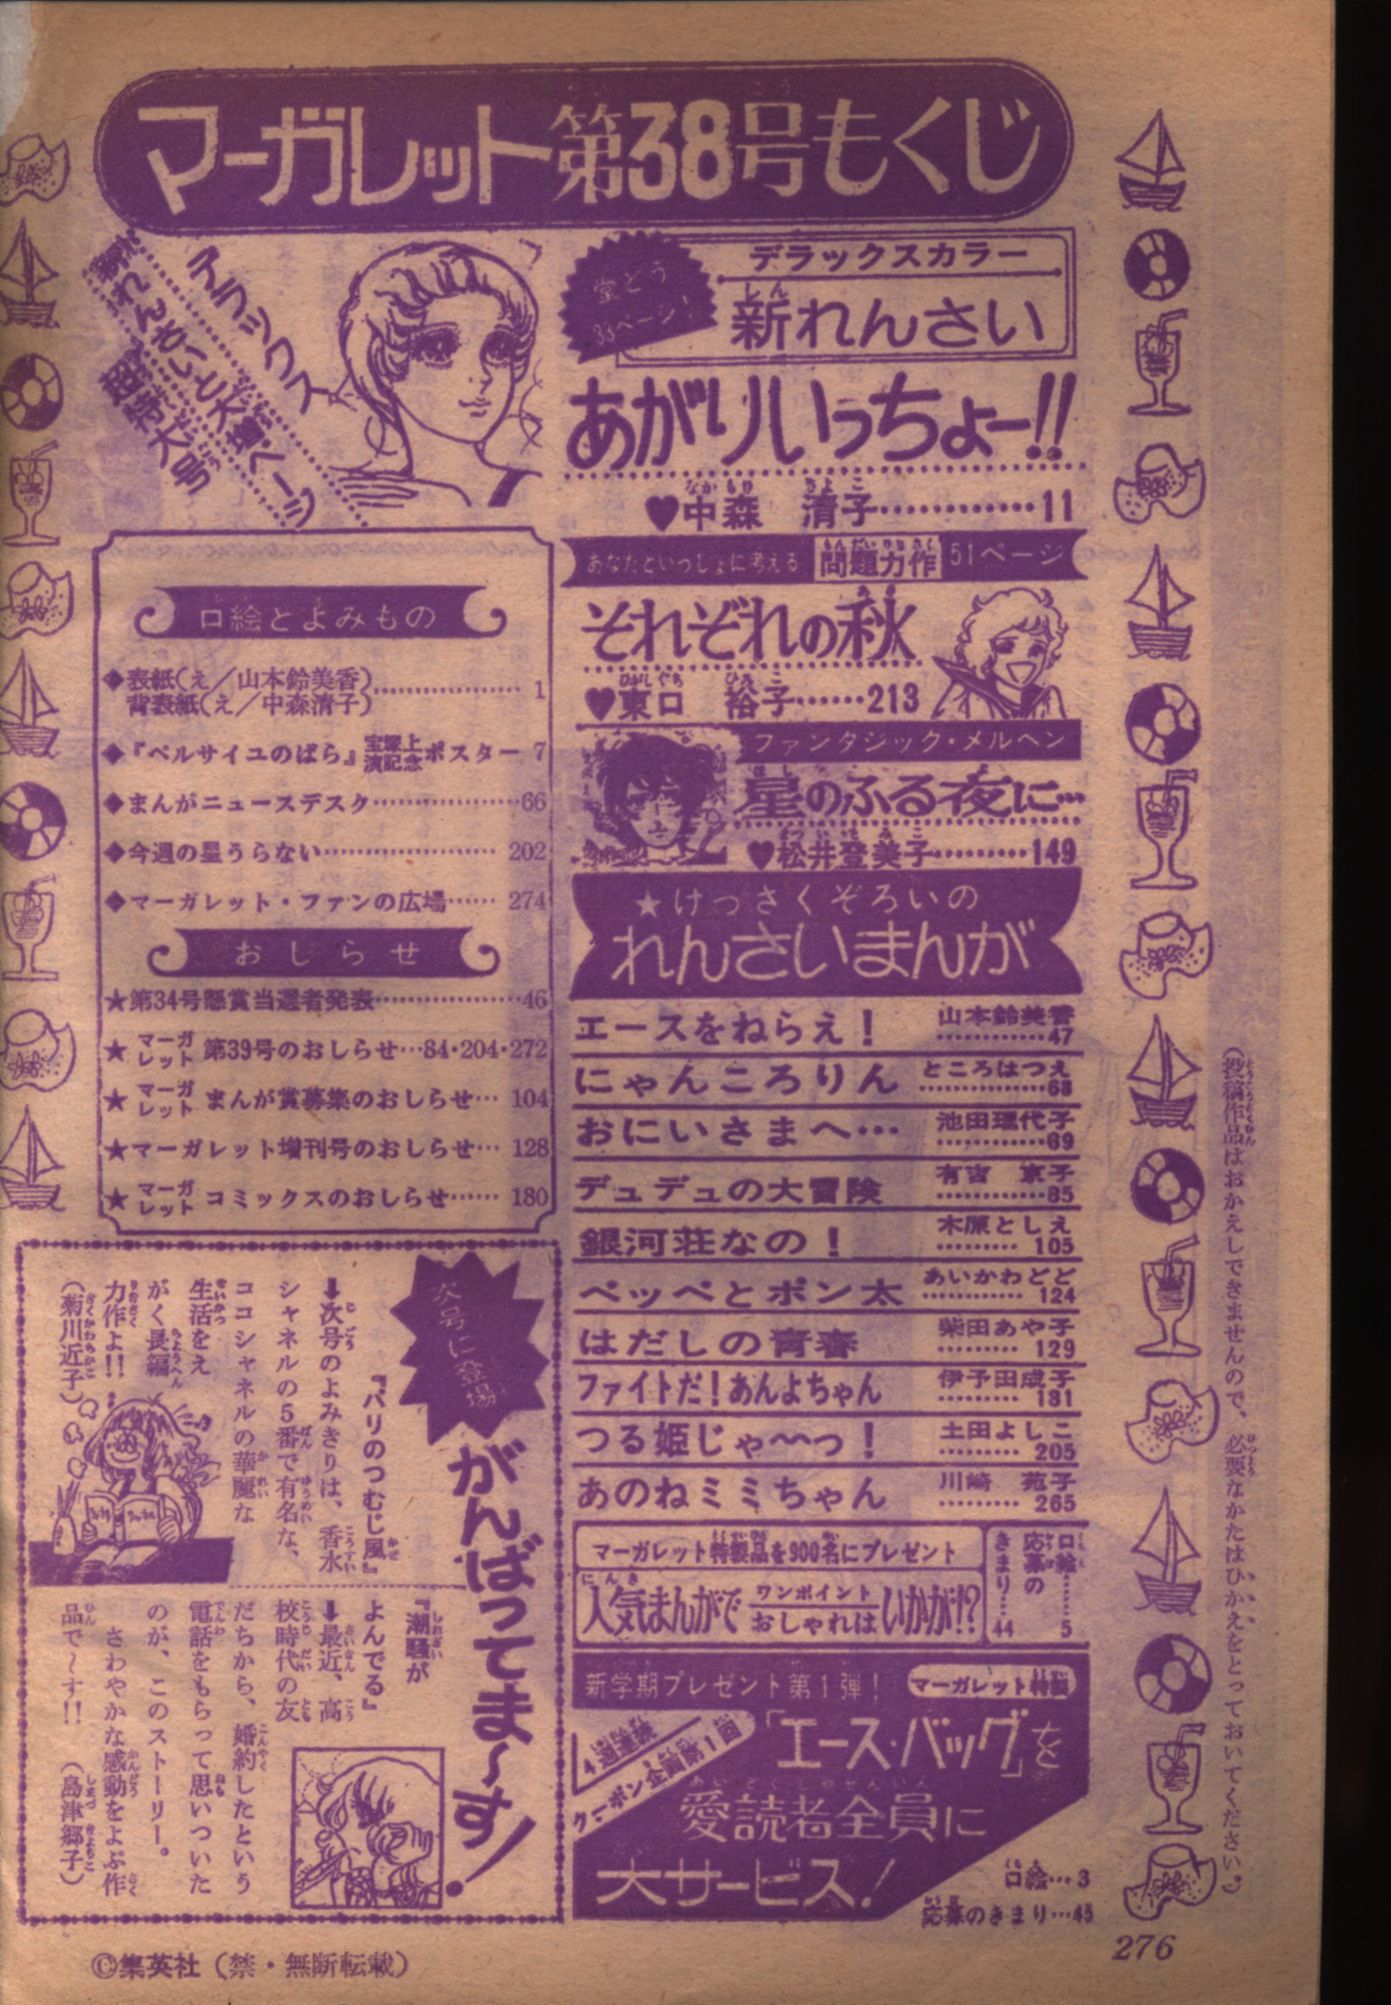 マーガレット第38号もくじ
デラックス
新れんさいと大増ページ
超特大号
堂どう
33ページ!
デラックスカラー
新れんさい
あがりいっちょー!!
♥中森 清子…………11
あなたといっしょに考える 問題力作 51ページ
それぞれの秋
♥東口 裕子……213
ファンタジック・メルヘン
星のふる夜に…
♥松井登美子………149
★けっさくぞろいの
れんさいまんが
エースをねらえ! 山本鈴美香 …………47
にゃんころりん ところはつえ …………68
おにいさまへ… 池田理代子 …………69
デュデュの大冒険 有吉 京子 …………85
銀河荘なの! 木原としえ ………105
ペッペとポン太 あいかわどど ………124
はだしの青春 柴田あや子 ………129
ファイトだ!あんよちゃん 伊予田成子 ………181
つる姫じゃ〜っ! 土田よしこ ………205
あのねミミちゃん 川崎 苑子 ………265
マーガレット特製品を900名にプレゼント
人気まんがでワンポイントおしゃれはいかが!?
口絵………5
応募の
きまり…44
新学期プレゼント第1弾! マーガレット特製
4週連続
クーポン企画第1回
「エース・バッグ」を
愛読者全員に
大サービス!
口絵…3
応募のきまり…45
口絵とよみもの
◆表紙(え/山本鈴美香)
背表紙(え/中森清子)………………1
◆『ベルサイユのばら』宝塚上演記念ポスター 7
◆まんがニュースデスク………………66
◆今週の星うらない…………………202
◆マーガレット・ファンの広場……274
おしらせ
★第34号懸賞当選者発表………………46
★マーガレット第39号のおしらせ…84・204・272
★マーガレットまんが賞募集のおしらせ…104
★マーガレット増刊号のおしらせ…128
★マーガレットコミックスのおしらせ……180
次号に登場
がんばってま〜す!
『パリのつむじ風』
⬇次号のよみきりは、香水
シャネルの5番で有名な、
ココシャネルの華麗な
生活をえ
がく長編
力作よ!!
(菊川近子)
『潮騒が
よんでる』
⬇最近、高
校時代の友
だちから、婚約したという
電話をもらって思いついた
のが、このストーリー。
さわやかな感動をよぶ作
品で〜す!! (島津郷子)
(投稿作品はおかえしできませんので、必要なかたはひかえをとっておいてください。)
©集英社(禁・無断転載)
276